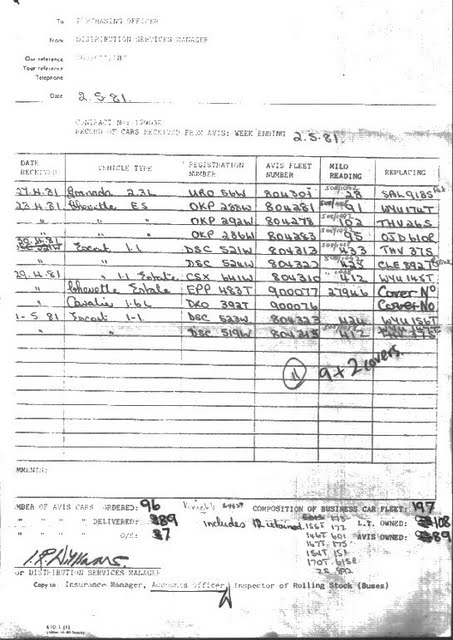 To PURCHASING OFFICER
From DISTRIBUTION SERVICES MANAGER
Our reference
Your reference
Telephone
Date 2.5.81.
CONTRACT NO:
RECORD OF CARS RECEIVED FROM AVIS: WEEK ENDING 2.5.81.
DATE RECEIVED VEHICLE TYPE REGISTRATION NUMBER AVIS FLEET NUMBER MILO READING REPLACING
27.4.81 Granada 2.3L URO 56W 804301 28 SAL 918S
23.4.81 Chevette ES OKP 288W 804281 91 WYU 174T
" " " OKP 292W 804278 102 THV 26S
" " " OKP 286W 804283 95 OSD 610P
Escort 1.1 DSC 521W 804313 433 THV 37S
" " DSC 524W 804322 CLE 892
29.4.81 " 1.1 Estate CSX 641W 804310 412 WYU 145T
" Chevette Estate EPP 483T 900077 27946 Cover No
" Cavalier 1.6L DKO 392T 900076 Cover No
1-5 81 Escort 1-1. DSC 523W 804323 424 WYU 156T
" " DSC 519W 804315 412
11 9 + 2 covers.
MMENTS:
MBER OF AVIS CARS ORDERED: 96 COMPOSITION OF BUSINESS CAR FLEET: 197
" " " " DELIVERED: 89 Includes 12 retained. L.T. OWNED: 108
" " " " O/S: 7 AVIS OWNED: 89
156T 172
146T 601
147T 175
154T 151
170T 615R
or DISTRIBUTION SERVICES MANAGER
Copy to Insurance Manager, Accounts Officer, Inspector of Rolling Stock (Buses)